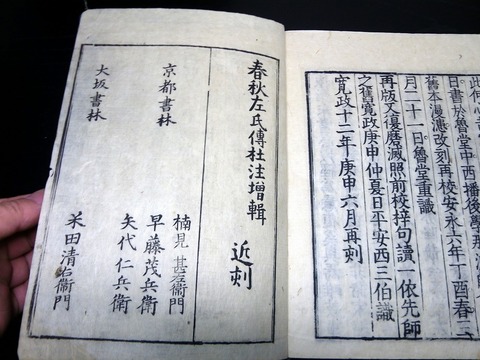 此何心
日書於魯堂中西播後學那
舊本漫漶改刻再校安永六年丁酉春二
月二十一日魯堂重識
再版又復磨滅照前校梓句讀一依先師
之舊寛政庚申仲夏日平安西三伯識
寛政十二年庚申六月再刻
春秋左氏傳杜注增輯 近刻
京都書林
楠見甚右衛門
早藤茂兵衛
矢代仁兵衛
大坂書林
米田清右衛門